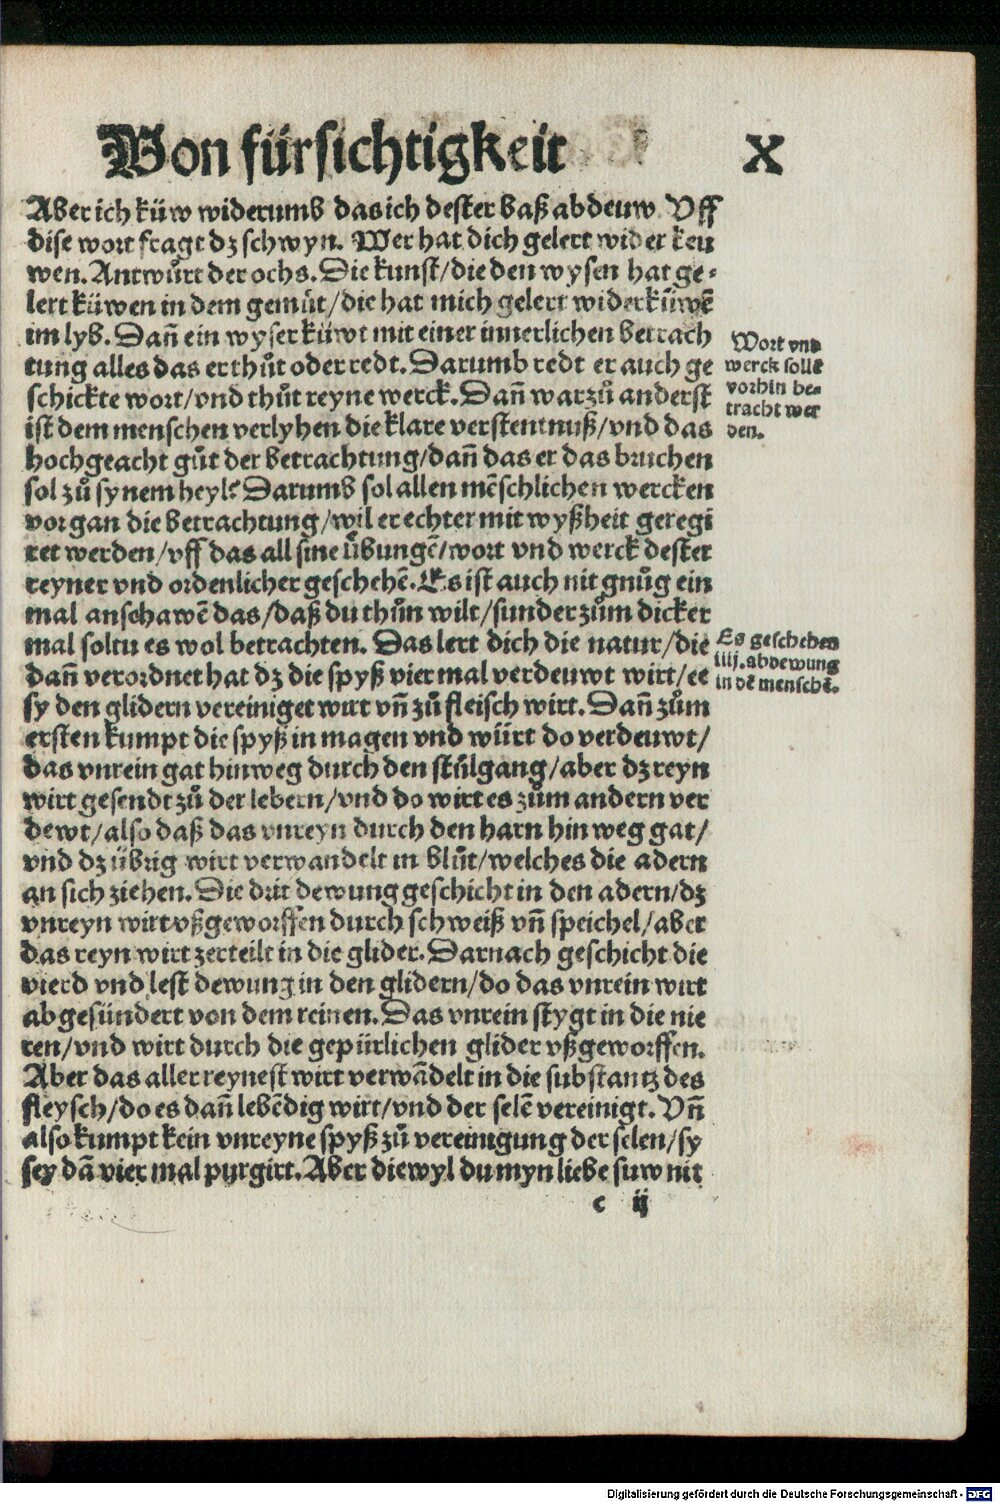 Von fürsichtigkeit X
Aber ich küw widerumb das ich dester baß abdeuw. Uff
dise wort fragt dz schwyn. Wer hat dich gelert wider keu
wen. Antwůrt der ochs. Die kunst/die den wysen hat ge⸗
lert küwen in dem gemüt/die hat mich gelert widerküwē
im lyb. Dañ ein wyser küwt mit einer innerlichen betrach
tung alles das er thůt oder redt. Darumb redt er auch ge
schickte wort/vnd thůt reyne werck. Dañ warzů anderst
ist dem menschen verlyhen die klare verstentnuß/vnd das
hochgeacht gůt der betrachtung/dañ das er das bruchen
sol zů synem heyl? Darumb sol allen mēschlichen wercken
vorgan die betrachtung/wil er echter mit wyßheit geregi
ret werden/vff das all sine übungē/wort vnd werck dester
reyner vnd ordenlicher geschehē. Es ist auch nit gnůg ein
mal anschawē das/daß du thůn wilt/sunder zům dicker
mal soltu es wol betrachten. Das lert dich die natur/die
dañ verordnet hat dz die spyß vier mal verdeuwt wirt/ee
sy den glidern vereiniget wirt vñ zů fleisch wirt. Dañ zům
ersten kumpt die spyß in magen vnd würt do verdeuwt/
das vnrein gat hinweg durch den stůlgang/aber dz reyn
wirt gesendt zů der lebern/vnd do wirt es zům andern ver
dewt/also daß das vnreyn durch den harn hin weg gat/
vnd dz übrig wirt verwandelt in blůt/welches die adern
an sich ziehen. Die drit dewung geschicht in den adern/dz
vnreyn wirt vßgeworffen durch schweiß vñ speichel/aber
das reyn wirt zerteilt in die glider. Darnach geschicht die
vierd vnd lest dewung in den glidern/do das vnrein wirt
abgesündert von dem reinen. Das vnrein stygt in die nie
ren/vnd wirt durch die gepürlichen glider vßgeworffen.
Aber das aller reynest wirt verwādelt in die substantz des
fleysch/do es dañ lebēdig wirt/vnd der selē vereinigt. Vñ
also kumpt kein vnreyne spyß zů vereinigung der selen/sy
sey dā vier mal purgirt. Aber diewyl du myn liebe suw nit
c ij
Wort vnd
werck sollē
vorhin be⸗
tracht wer
den.
Es geschehen
iiij. abdewung
in dē menschē.
Digitalisierung gefördert durch die Deutsche Forschungsgemeinschaft - DFG